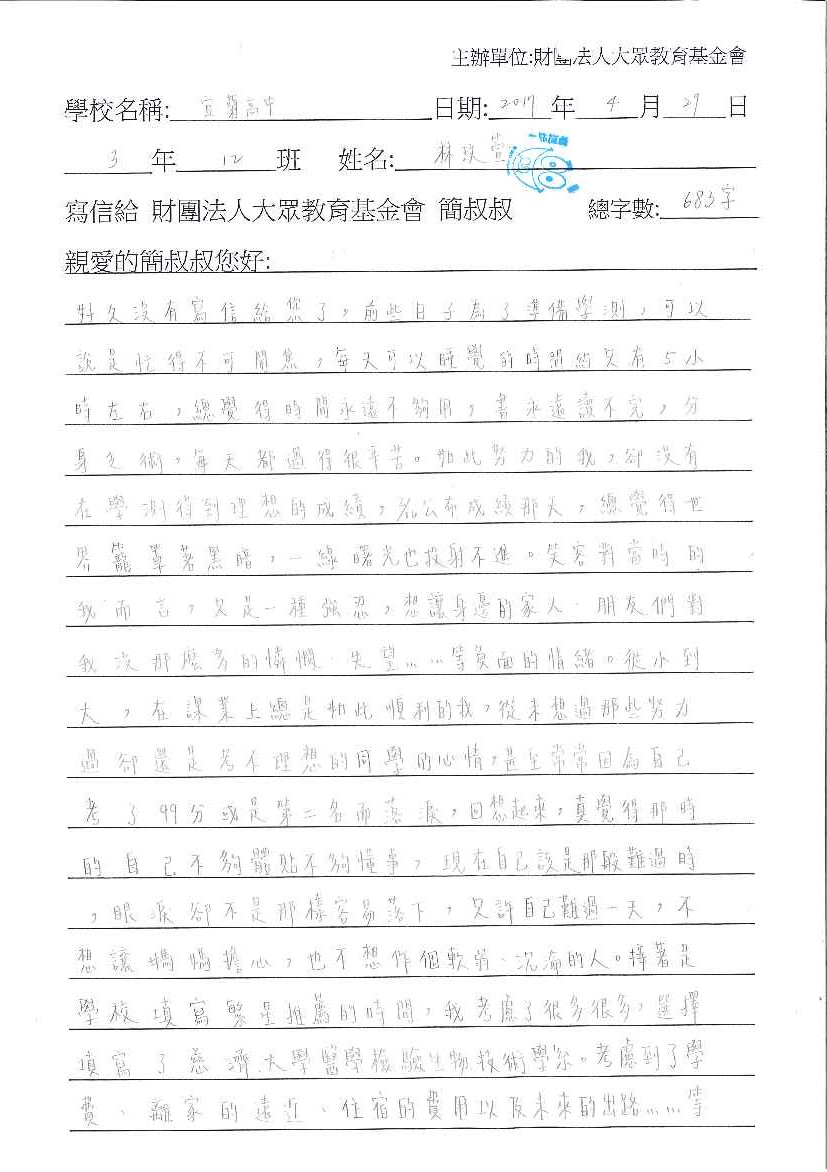 主辦單位:財團法人大眾教育基金會
學校名稱: 宜蘭高中 日期: 2017 年 4 月 27 日
3 年 12 班 姓名: 林玟萱
寫信給 財團法人大眾教育基金會 簡叔叔 總字數: 683字
親愛的簡叔叔您好:
好久沒有寫信給您了，前些日子為了準備學測，可以
說是忙得不可開焦，每天可以睡覺的時間約只有5小
時左右，總覺得時間永遠不夠用，書永遠讀不完，分
身乏術，每天都過得很辛苦。如此努力的我，卻沒有
在學測得到理想的成績，在公布成績那天，總覺得世
界籠罩著黑暗，一線曙光也投射不進。笑容對當時的
我而言，只是一種強忍，想讓身邊的家人、朋友們對
我沒那麼多的憐憫、失望……等負面的情緒。從小到
大，在課業上總是如此順利的我，從未想過那些努力
過卻還是考不理想的同學的心情，甚至常常因為自己
考了99分或是第二名而落淚，回想起來，真覺得那時
的自己不夠體貼不夠懂事，現在自己該是那般難過時
，眼淚卻不是那樣容易落下，只許自己難過一天，不
想讓媽媽擔心，也不想作個軟弱、沉淪的人。接著是
學校填寫繁星推薦的時間，我考慮了很多很多，選擇
填寫了慈濟大學醫學檢驗生物技術學系。考慮到了學
費、離家的遠近、住宿的費用以及未來的出路……等